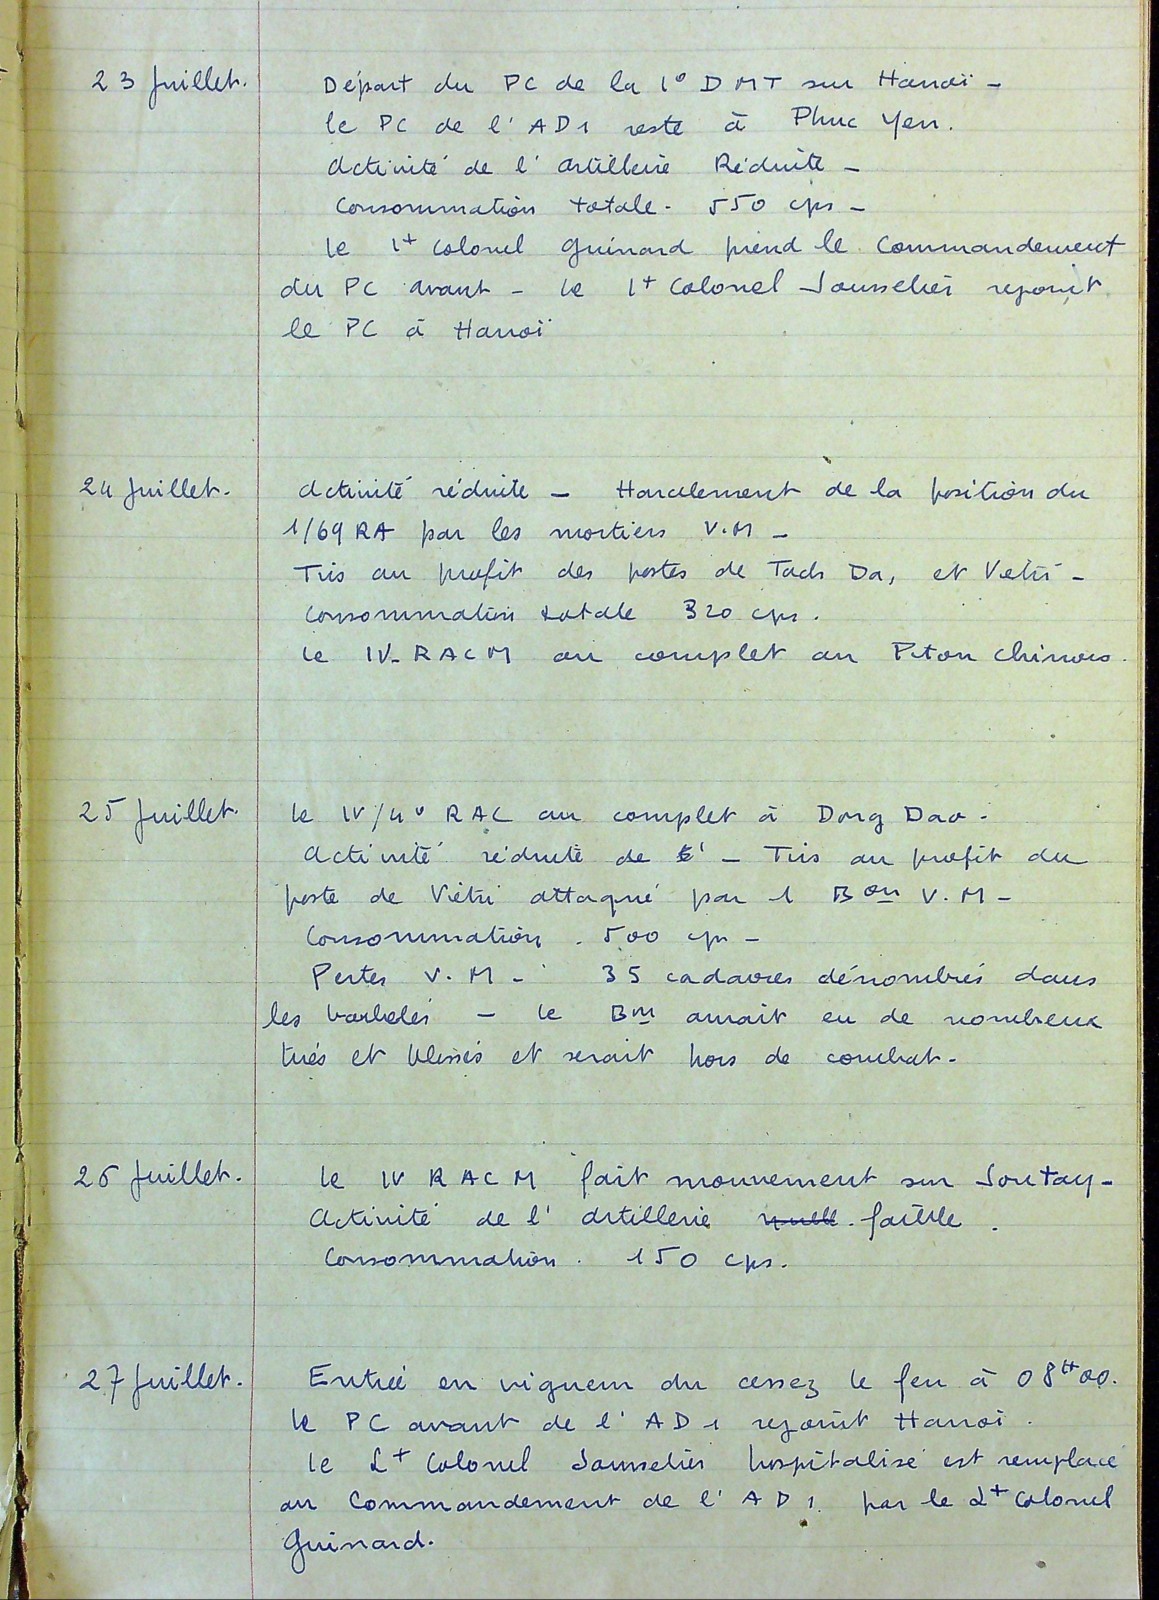 23 Juillet. Départ du PC de la 1° DMT sur Hanoï -
le PC de l'AD1 reste à Phuc Yen.
Activité de l'artillerie Réduite -
Consommation totale - 550 cps -
Le Lt Colonel Guinard prend le Commandement
du PC avant - Le Lt Colonel Sousselier rejoint
le PC à Hanoï
24 Juillet. Activité réduite - Harcelement de la position du
1/69 RA par les mortiers V.M -
Tirs au profit des postes de Tach Da, et Vietri -
Consommation totale 320 cps.
Le IV-RACM au complet au Piton Chinois.
25 Juillet. Le IV/4° RAC au complet à Dong Dao -
Activité réduite de - Tirs au profit du
poste de Viétri attaqué par 1 Bon V.M -
Consommation. 500 cps -
Pertes V.M - 35 cadavres dénombrés dans
les barbelés - Le Bon aurait eu de nombreux
tués et blessés et serait hors de combat -
26 Juillet. Le IV RACM fait mouvement sur Sontay -
Activité de l'artillerie nulle. faible.
Consommation. 150 cps.
27 Juillet. Entrée en vigueur du cessez le feu à 08H00.
Le PC avant de l'AD1 rejoint Hanoi.
Le Lt Colonel Sousselier hospitalisé est remplacé
au Commandement de l'AD1 par le Lt Colonel
Guinard.